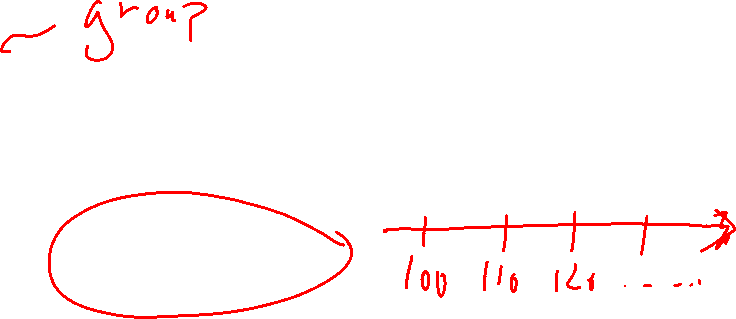 group
100 110 120 ......